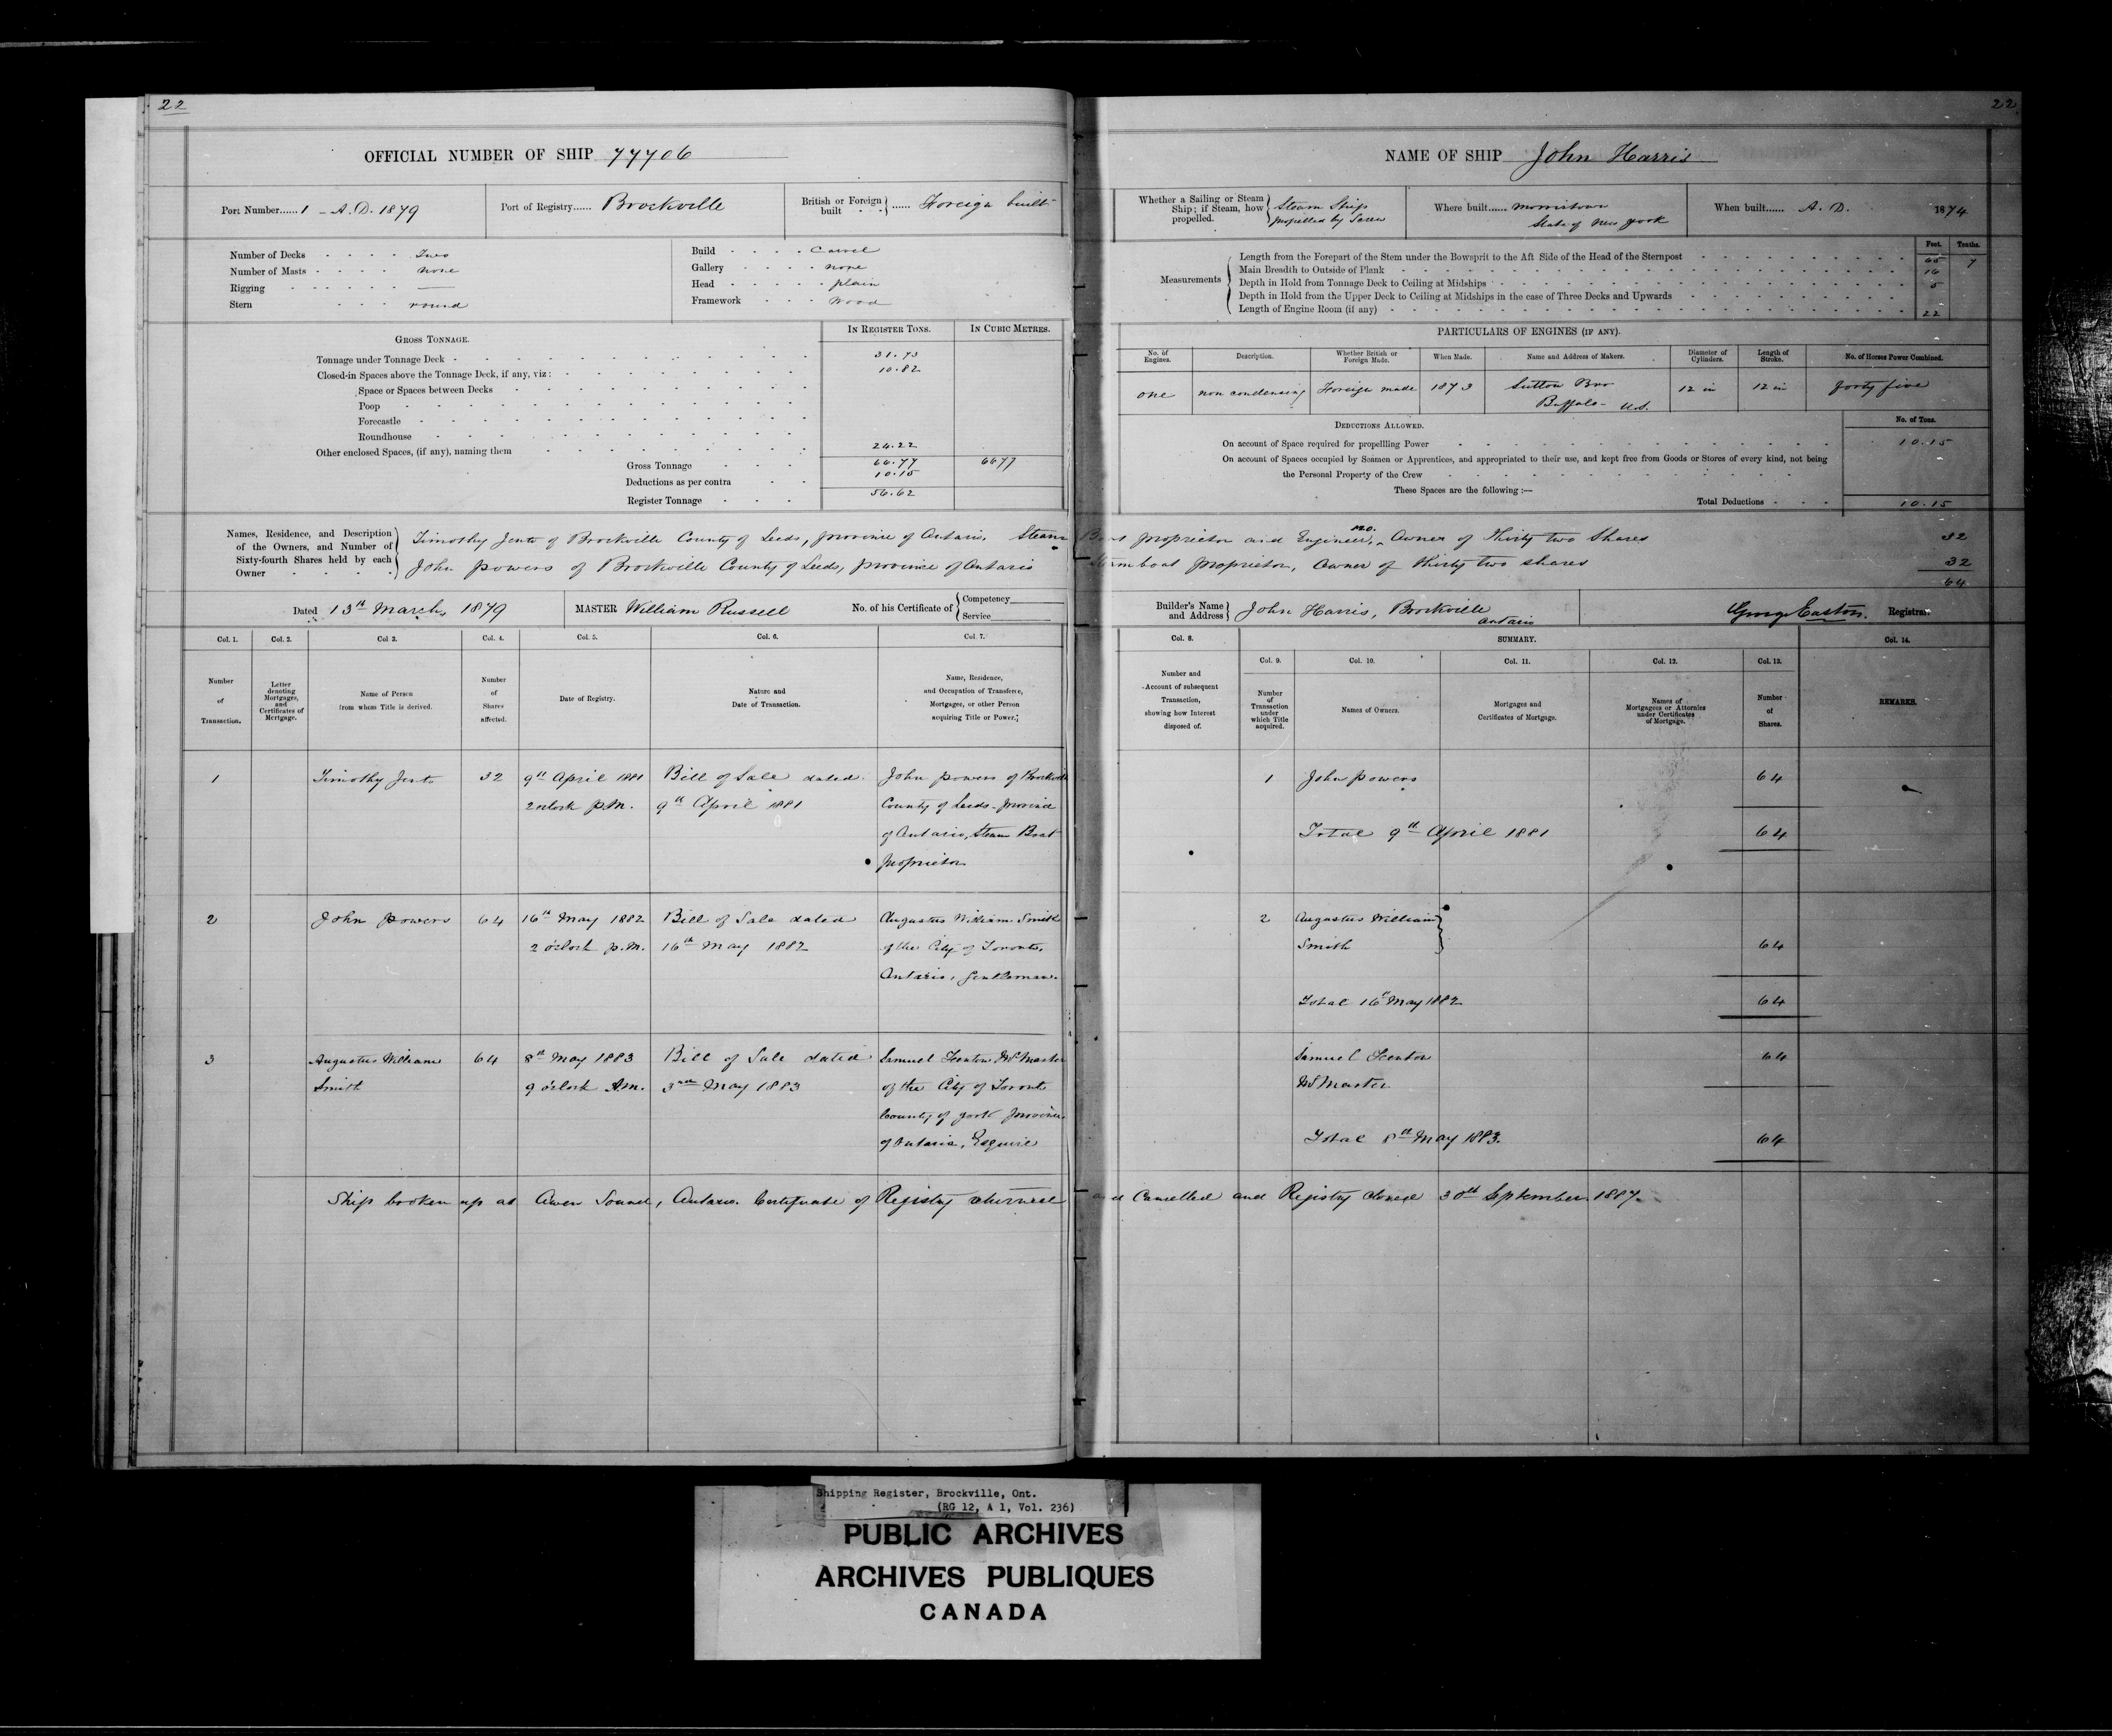 22
OFFICIAL NUMBER OF SHIP 77706
Port Number......1 - A.D. 1879
Port of Registry...... Brockville
British or Foreign built...... Foreign built
Number of Decks Two
Number of Masts none
Rigging —
Stern round
Build Carvel
Gallery none
Head plain
Framework Wood
GROSS TONNAGE.
IN REGISTER TONS.
IN CUBIC METRES.
Tonnage under Tonnage Deck 31.73
Closed-in Spaces above the Tonnage Deck, if any, viz: 10.82
Space or Spaces between Decks
Poop
Forecastle
Roundhouse
Other enclosed Spaces, (if any), naming them 24.22
Gross Tonnage 66.77 6677
Deductions as per contra 10.15
Register Tonnage 56.62
Names, Residence, and Description of the Owners, and Number of Sixty-fourth Shares held by each Owner
Timothy Jento of Brockville County of Leeds, province of Ontario, Steam
John Powers of Brockville County of Leeds, province of Ontario
Dated 13th March, 1879
MASTER William Russell
No. of his Certificate of { Competency
Service
Col. 1. Col. 2. Col 3. Col. 4. Col. 5. Col. 6. Col. 7.
Number of Transaction.
Letter denoting Mortgages, and Certificates of Mortgage.
Name of Person from whom Title is derived.
Number of Shares affected.
Date of Registry.
Nature and Date of Transaction.
Name, Residence, and Occupation of Transferee, Mortgagee, or other Person acquiring Title or Power.
1 Timothy Jento 32 9th April 1881 Bill of Sale dated John Powers of Brockville
2 oclock p.m. 9th April 1881 County of Leeds - province
of Ontario, Steam Boat
proprietor
2 John Powers 64 16th May 1882 Bill of Sale dated Augustus William Smith
2 o'clock p.m. 16th May 1882 of the City of Toronto,
Ontario, Gentleman.
3 Augustus William 64 8th May 1883 Bill of Sale dated Samuel Fenton McMaster
Smith 9 o'clock A.m. 3rd May 1883 of the City of Toronto
County of York province
of Ontario, Esquire
Ship broken up at Owen Sound, Ontario. Certificate of Registry returned
22
NAME OF SHIP John Harris
Whether a Sailing or Steam Ship; if Steam, how propelled. Steam Ship
propelled by Screw
Where built...... Morristown
State of New York
When built...... A.D. 1874
Measurements
Feet. Tenths.
Length from the Forepart of the Stem under the Bowsprit to the Aft Side of the Head of the Sternpost 65 7
Main Breadth to Outside of Plank 16
Depth in Hold from Tonnage Deck to Ceiling at Midships 5
Depth in Hold from the Upper Deck to Ceiling at Midships in the case of Three Decks and Upwards
Length of Engine Room (if any) 22
PARTICULARS OF ENGINES (IF ANY).
No. of Engines. Description. Whether British or Foreign Made. When Made. Name and Address of Makers. Diameter of Cylinders. Length of Stroke. No. of Horses Power Combined.
one non condensing Foreign made 1873 Sutton Bro 12 in 12 in forty five
Buffalo - U.S.
DEDUCTIONS ALLOWED.
No. of Tons.
On account of Space required for propelling Power 10.15
On account of Spaces occupied by Seamen or Apprentices, and appropriated to their use, and kept free from Goods or Stores of every kind, not being
the Personal Property of the Crew
These Spaces are the following :—
Total Deductions 10.15
Boat proprietor and Engineer, Owner of Thirty two Shares 32
Steamboat proprietor, Owner of thirty two shares 32
64
Builder's Name and Address John Harris, Brockville
Ontario
George Easton. Registrar.
Col. 8. SUMMARY. Col. 14.
Col. 9. Col. 10. Col. 11. Col. 12. Col. 13.
Number and Account of subsequent Transaction, showing how Interest disposed of.
Number of Transaction under which Title acquired.
Names of Owners.
Mortgages and Certificates of Mortgage.
Names of Mortgagees or Attornies under Certificates of Mortgage.
Number of Shares.
REMARKS.
1 John Powers 64
Total 9th April 1881 64
2 Augustus William
Smith 64
Total 16th May 1882 64
Samuel Fenton 64
McMaster
Total 8th May 1883. 64
and Cancelled and Registry closed 30th September 1887
Shipping Register, Brockville, Ont.
(RG 12, A 1, Vol. 236)
PUBLIC ARCHIVES
ARCHIVES PUBLIQUES
CANADA